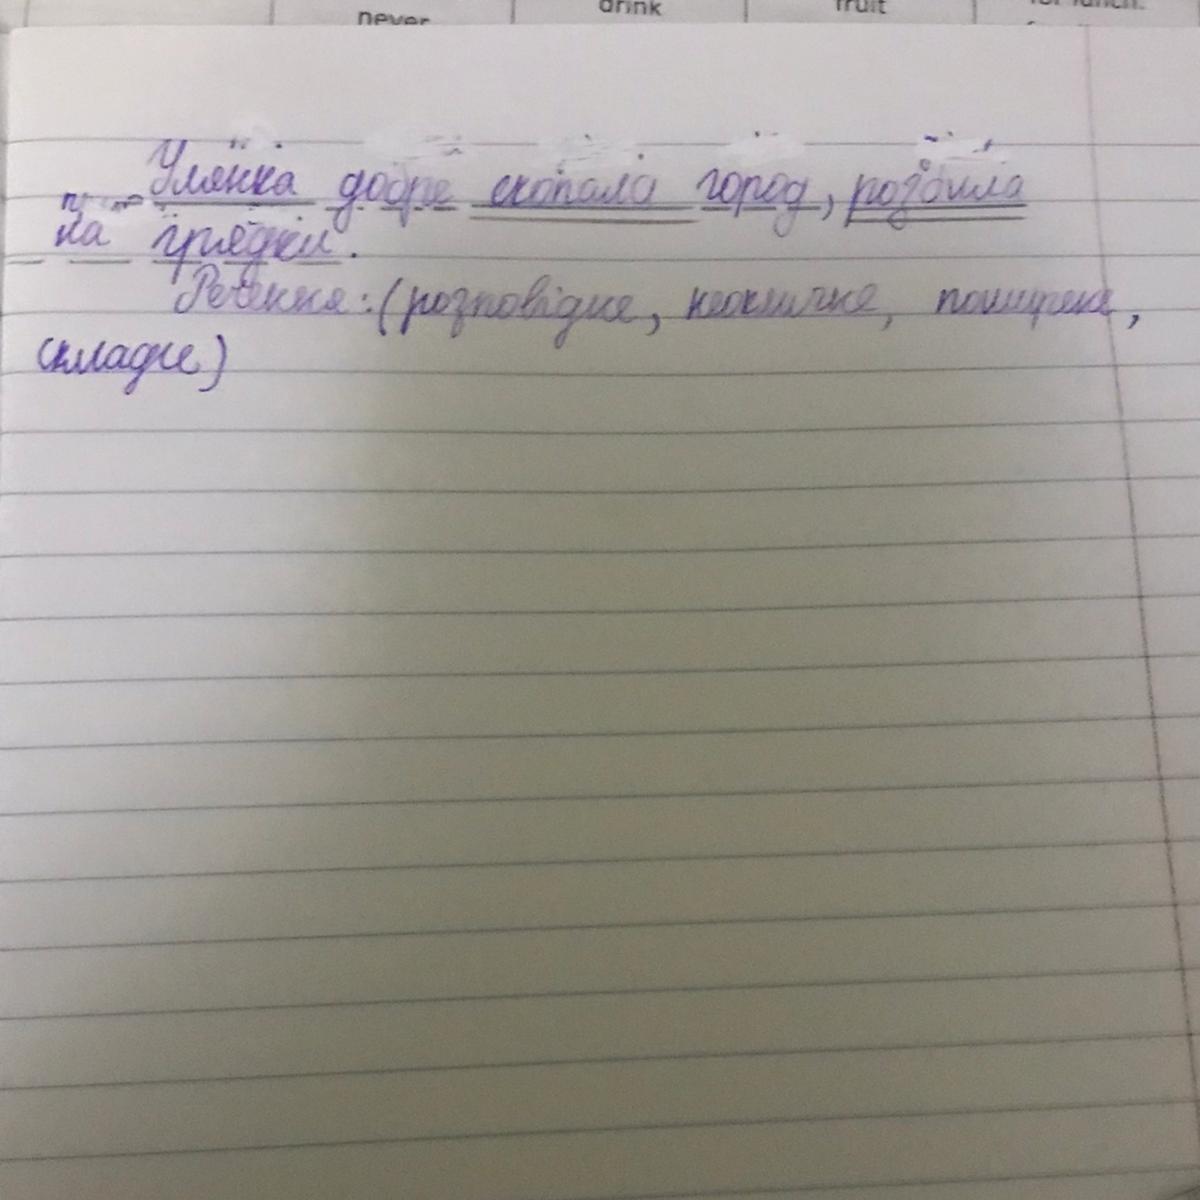 never
drink
fruit
for lunch.
Улянка добре скопала город, розбила
на грядки.
Речення: (розповідне, неокличне, поширене,
складне)